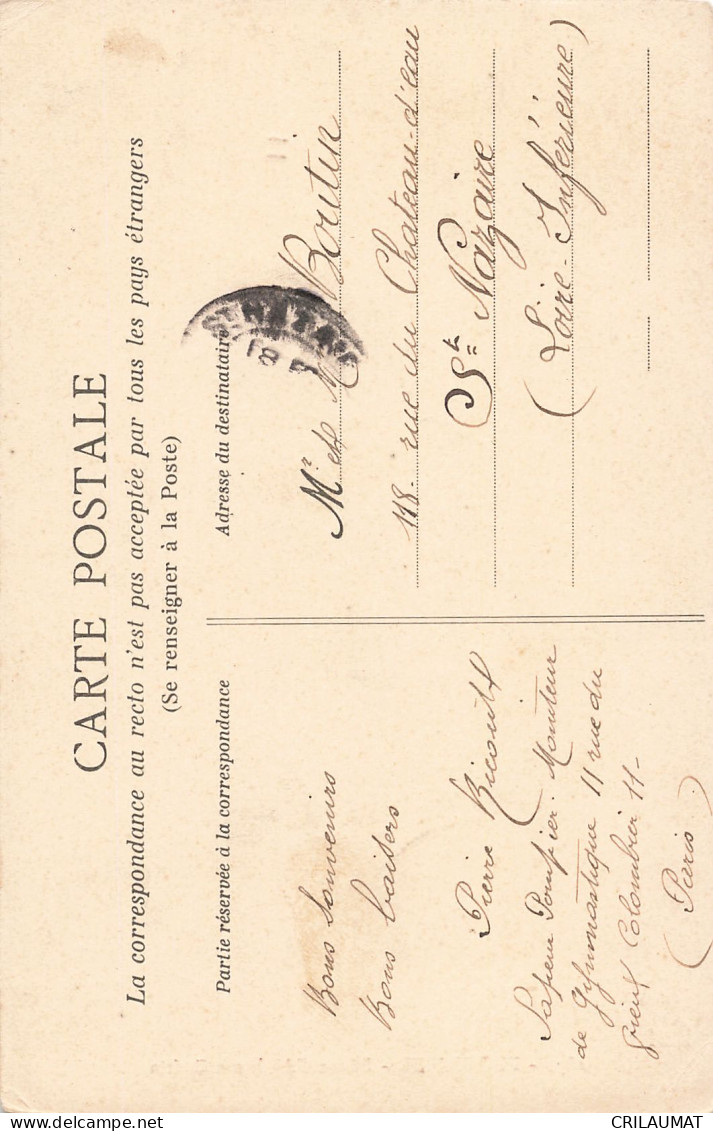 CARTE POSTALE
La correspondance au recto n'est pas acceptée par tous les pays étrangers
(Se renseigner à la Poste)
Partie réservée à la correspondance
Bons Souvenirs
Bons baisers
Pierre
Sapeur Pompier. Moniteur
de Gymnastique 11 rue du
Vieux Colombier 11-
(Paris)
Adresse du destinataire
Mr et M Boutin
118. rue du Chateau-d'eau
St Nazaire
(Loire-Inférieure)
CRILAUMAT